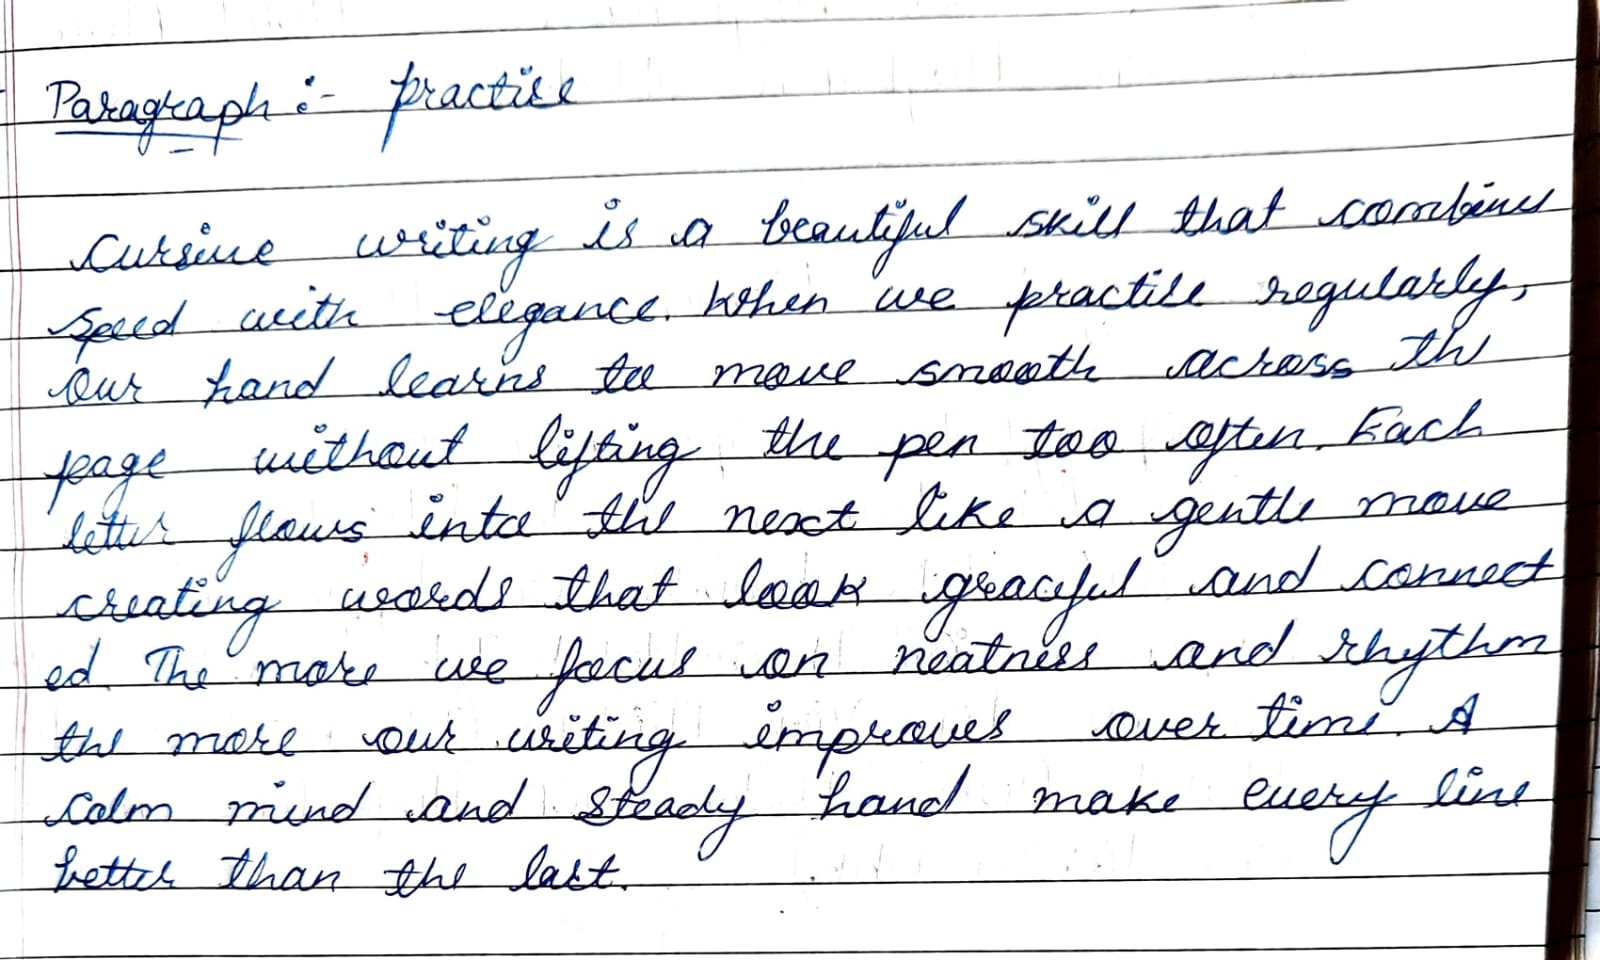 Paragraph :- practise
Cursive writing is a beautiful skill that combines
speed with elegance. When we practise regularly,
our hand learns to move smooth across the
page without lifting the pen too often. Each
letter flows into the next like a gentle move
creating words that look graceful and connect
ed. The more we focus on neatness and rhythm
the more our writing improves over time. A
calm mind and steady hand make every line
better than the last.